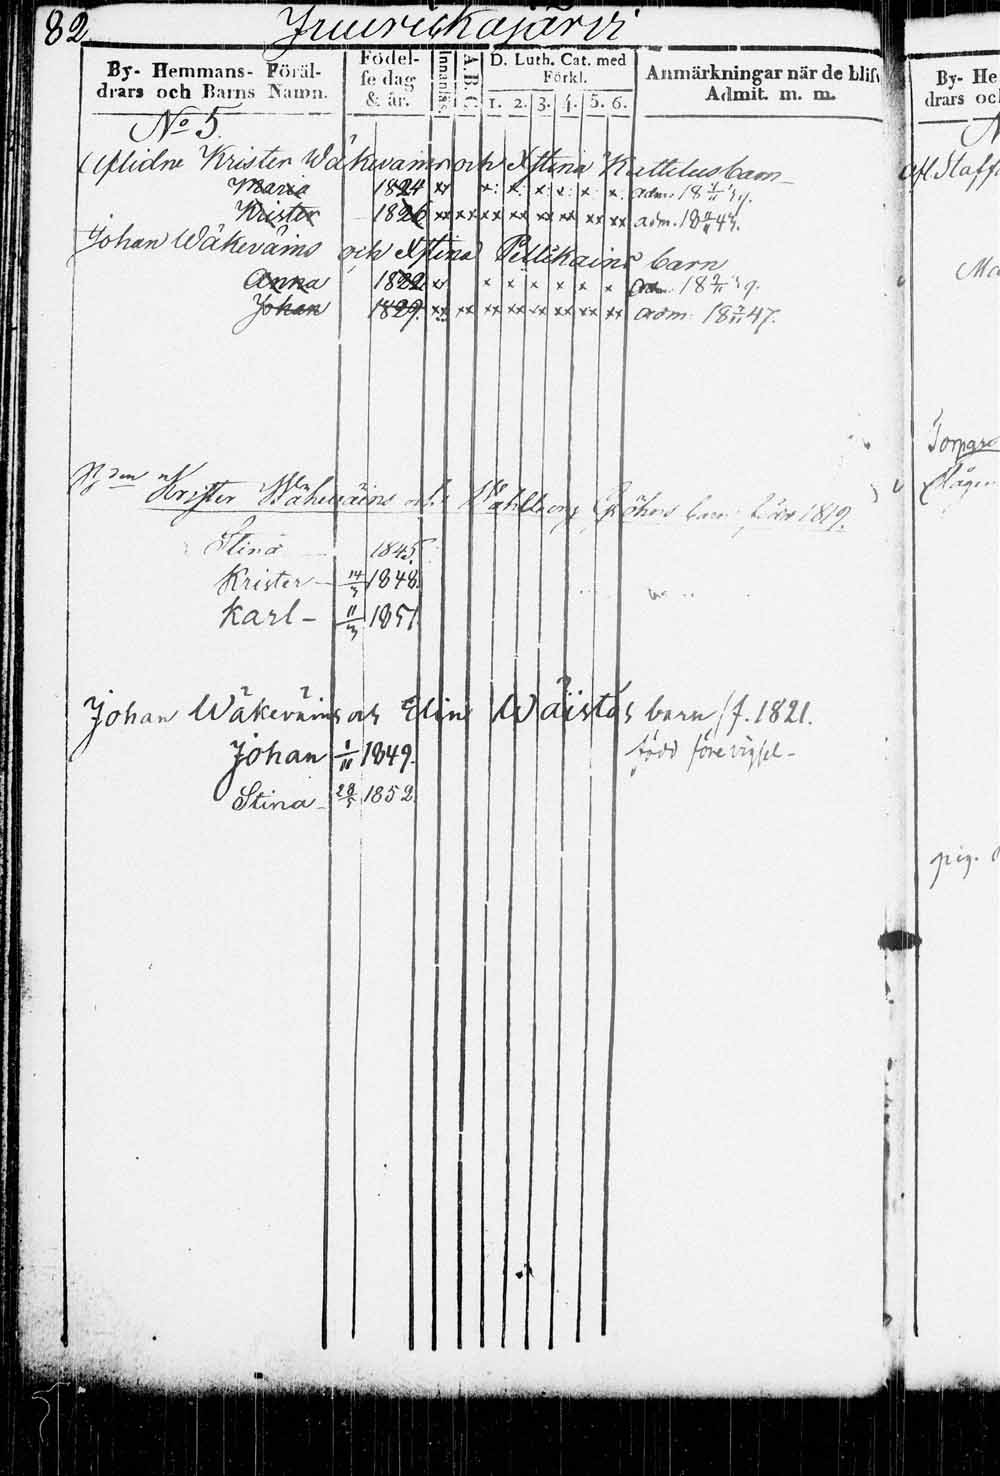 82. Juurickajärvi
By- Hemmans- Föräl-
drars och Barns Namn.
Födel-
se dag
& år.
Innanläs.
A. B. C.
D. Luth. Cat. med
Förkl.
1. 2. 3. 4. 5. 6.
Anmärkningar när de blifv
Admit. m. m.
No 5.
Aflidne Krister Wäkewäins och Xstina Kuttelus barn
Maria 1824 adm. 18
Krister 1826 adm. 18 43.
Johan Wäkeväins och Xstina Pellikains barn
Anna 1822 adm. 18
Johan 1829. adm. 18 47.
Krister Wäkeväins och Wahlborg barn 1819.
Stina 1845.
Krister – 14/3 1848.
Karl – 11/3 1851
Johan Wäkeväins och Elin Wäistös barn /f. 1821.
Johan 1/11 1849. född före vigsel –
Stina – 28/5 1852.
By- He
drars oc
Afl. Staff
Ma
Torpare
pig.